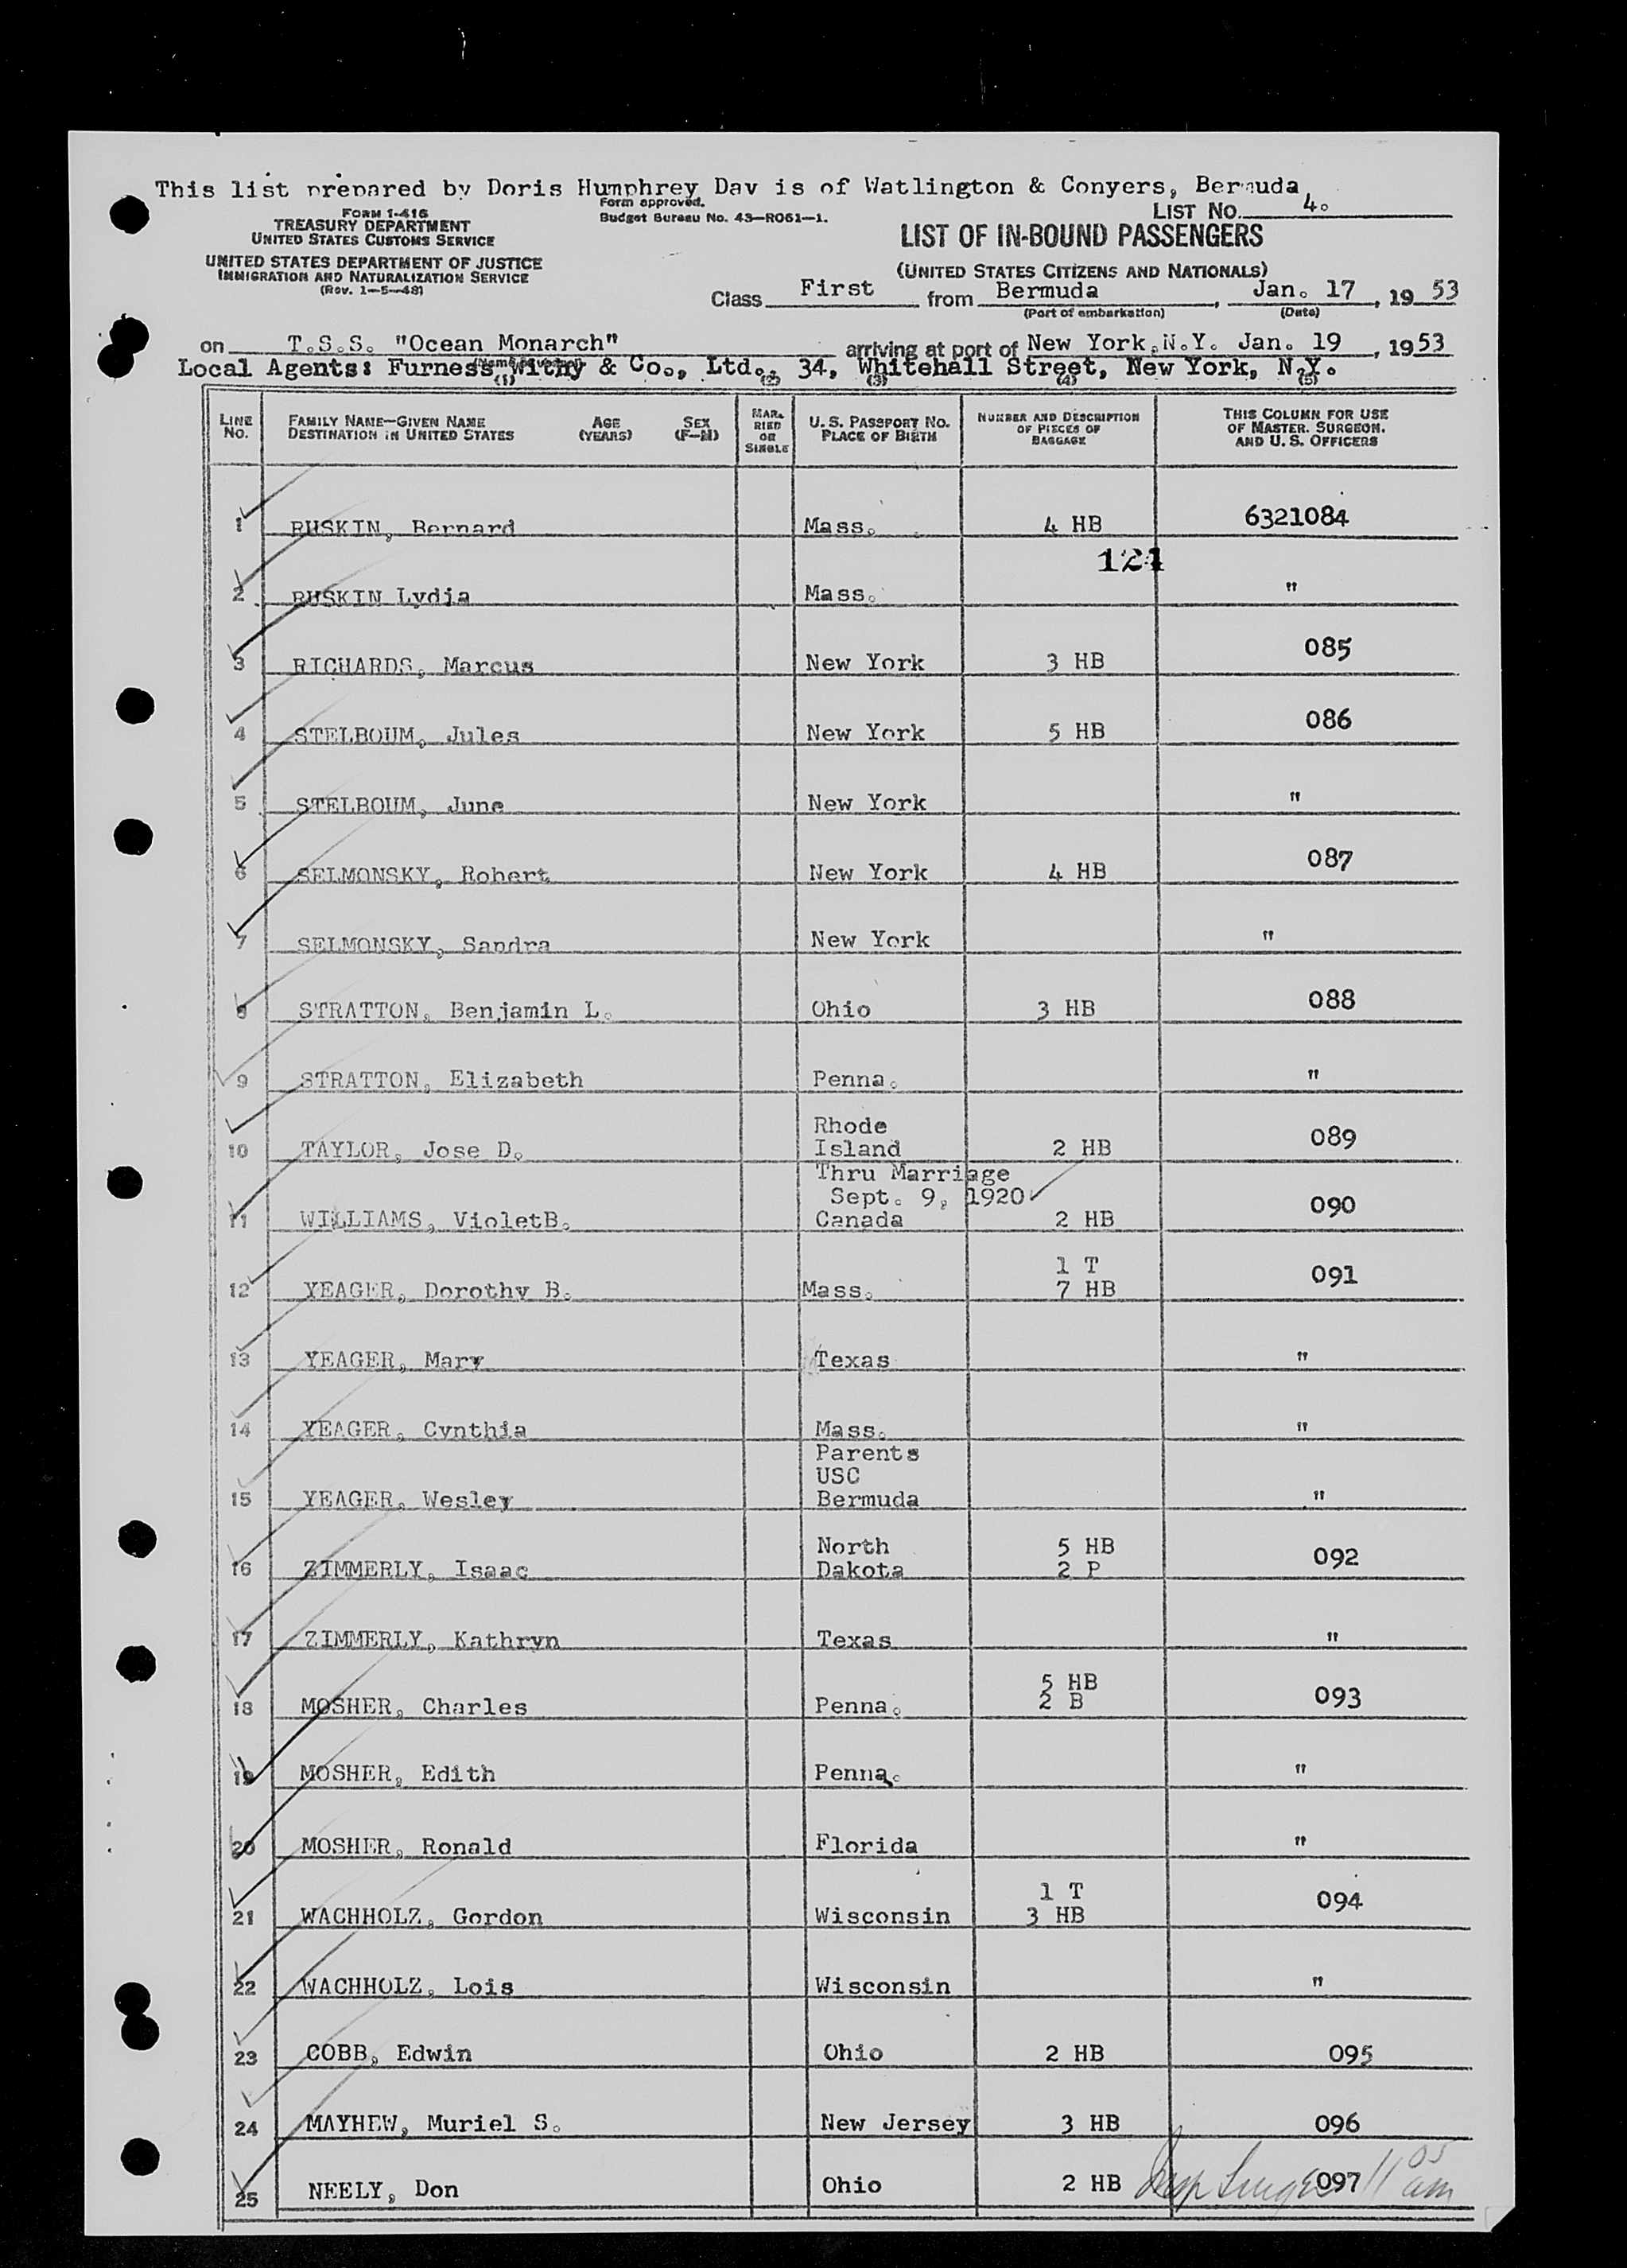 This list prepared by Doris Humphrey Dav is of Watlington & Conyers, Bermuda
Form approved.
Budget Bureau No. 43-RO61-1.
FORM I-416
TREASURY DEPARTMENT
UNITED STATES CUSTOMS SERVICE
UNITED STATES DEPARTMENT OF JUSTICE
IMMIGRATION AND NATURALIZATION SERVICE
(Rev. 1-5-48)
LIST NO. 4.
LIST OF IN-BOUND PASSENGERS
(UNITED STATES CITIZENS AND NATIONALS)
Class First from Bermuda, Jan. 17, 19 53
(Port of embarkation) (Date)
on T.S.S. "Ocean Monarch" arriving at port of New York, N.Y. Jan. 19, 1953
(Name of vessel)
Local Agents: Furness Withy & Co., Ltd., 34, Whitehall Street, New York, N.Y.
(1) (2) (3) (4) (5)
LINE No. FAMILY NAME—GIVEN NAME DESTINATION IN UNITED STATES AGE (YEARS) SEX (F-M) MARRIED OR SINGLE U. S. PASSPORT NO. PLACE OF BIRTH NUMBER AND DESCRIPTION OF PIECES OF BAGGAGE THIS COLUMN FOR USE OF MASTER, SURGEON, AND U. S. OFFICERS
1 RUSKIN, Bernard Mass. 4 HB 6321084
121
2 RUSKIN Lydia Mass. "
3 RICHARDS, Marcus New York 3 HB 085
4 STELBOUM, Jules New York 5 HB 086
5 STELBOUM, June New York "
6 SELMONSKY, Robert New York 4 HB 087
7 SELMONSKY, Sandra New York "
8 STRATTON, Benjamin L. Ohio 3 HB 088
9 STRATTON, Elizabeth Penna. "
Rhode
10 TAYLOR, Jose D. Island 2 HB 089
Thru Marriage
Sept. 9, 1920
11 WILLIAMS, VioletB. Canada 2 HB 090
1 T
12 YEAGER, Dorothy B. Mass. 7 HB 091
13 YEAGER, Mary Texas "
14 YEAGER, Cynthia Mass. "
Parents
USC
15 YEAGER, Wesley Bermuda "
North 5 HB
16 ZIMMERLY, Isaac Dakota 2 P 092
17 ZIMMERLY, Kathryn Texas "
5 HB
18 MOSHER, Charles Penna. 2 B 093
19 MOSHER, Edith Penna. "
20 MOSHER, Ronald Florida "
1 T
21 WACHHOLZ, Gordon Wisconsin 3 HB 094
22 WACHHOLZ, Lois Wisconsin "
23 COBB, Edwin Ohio 2 HB 095
24 MAYHEW, Muriel S. New Jersey 3 HB 096
25 NEELY, Don Ohio 2 HB 097 11 05 am